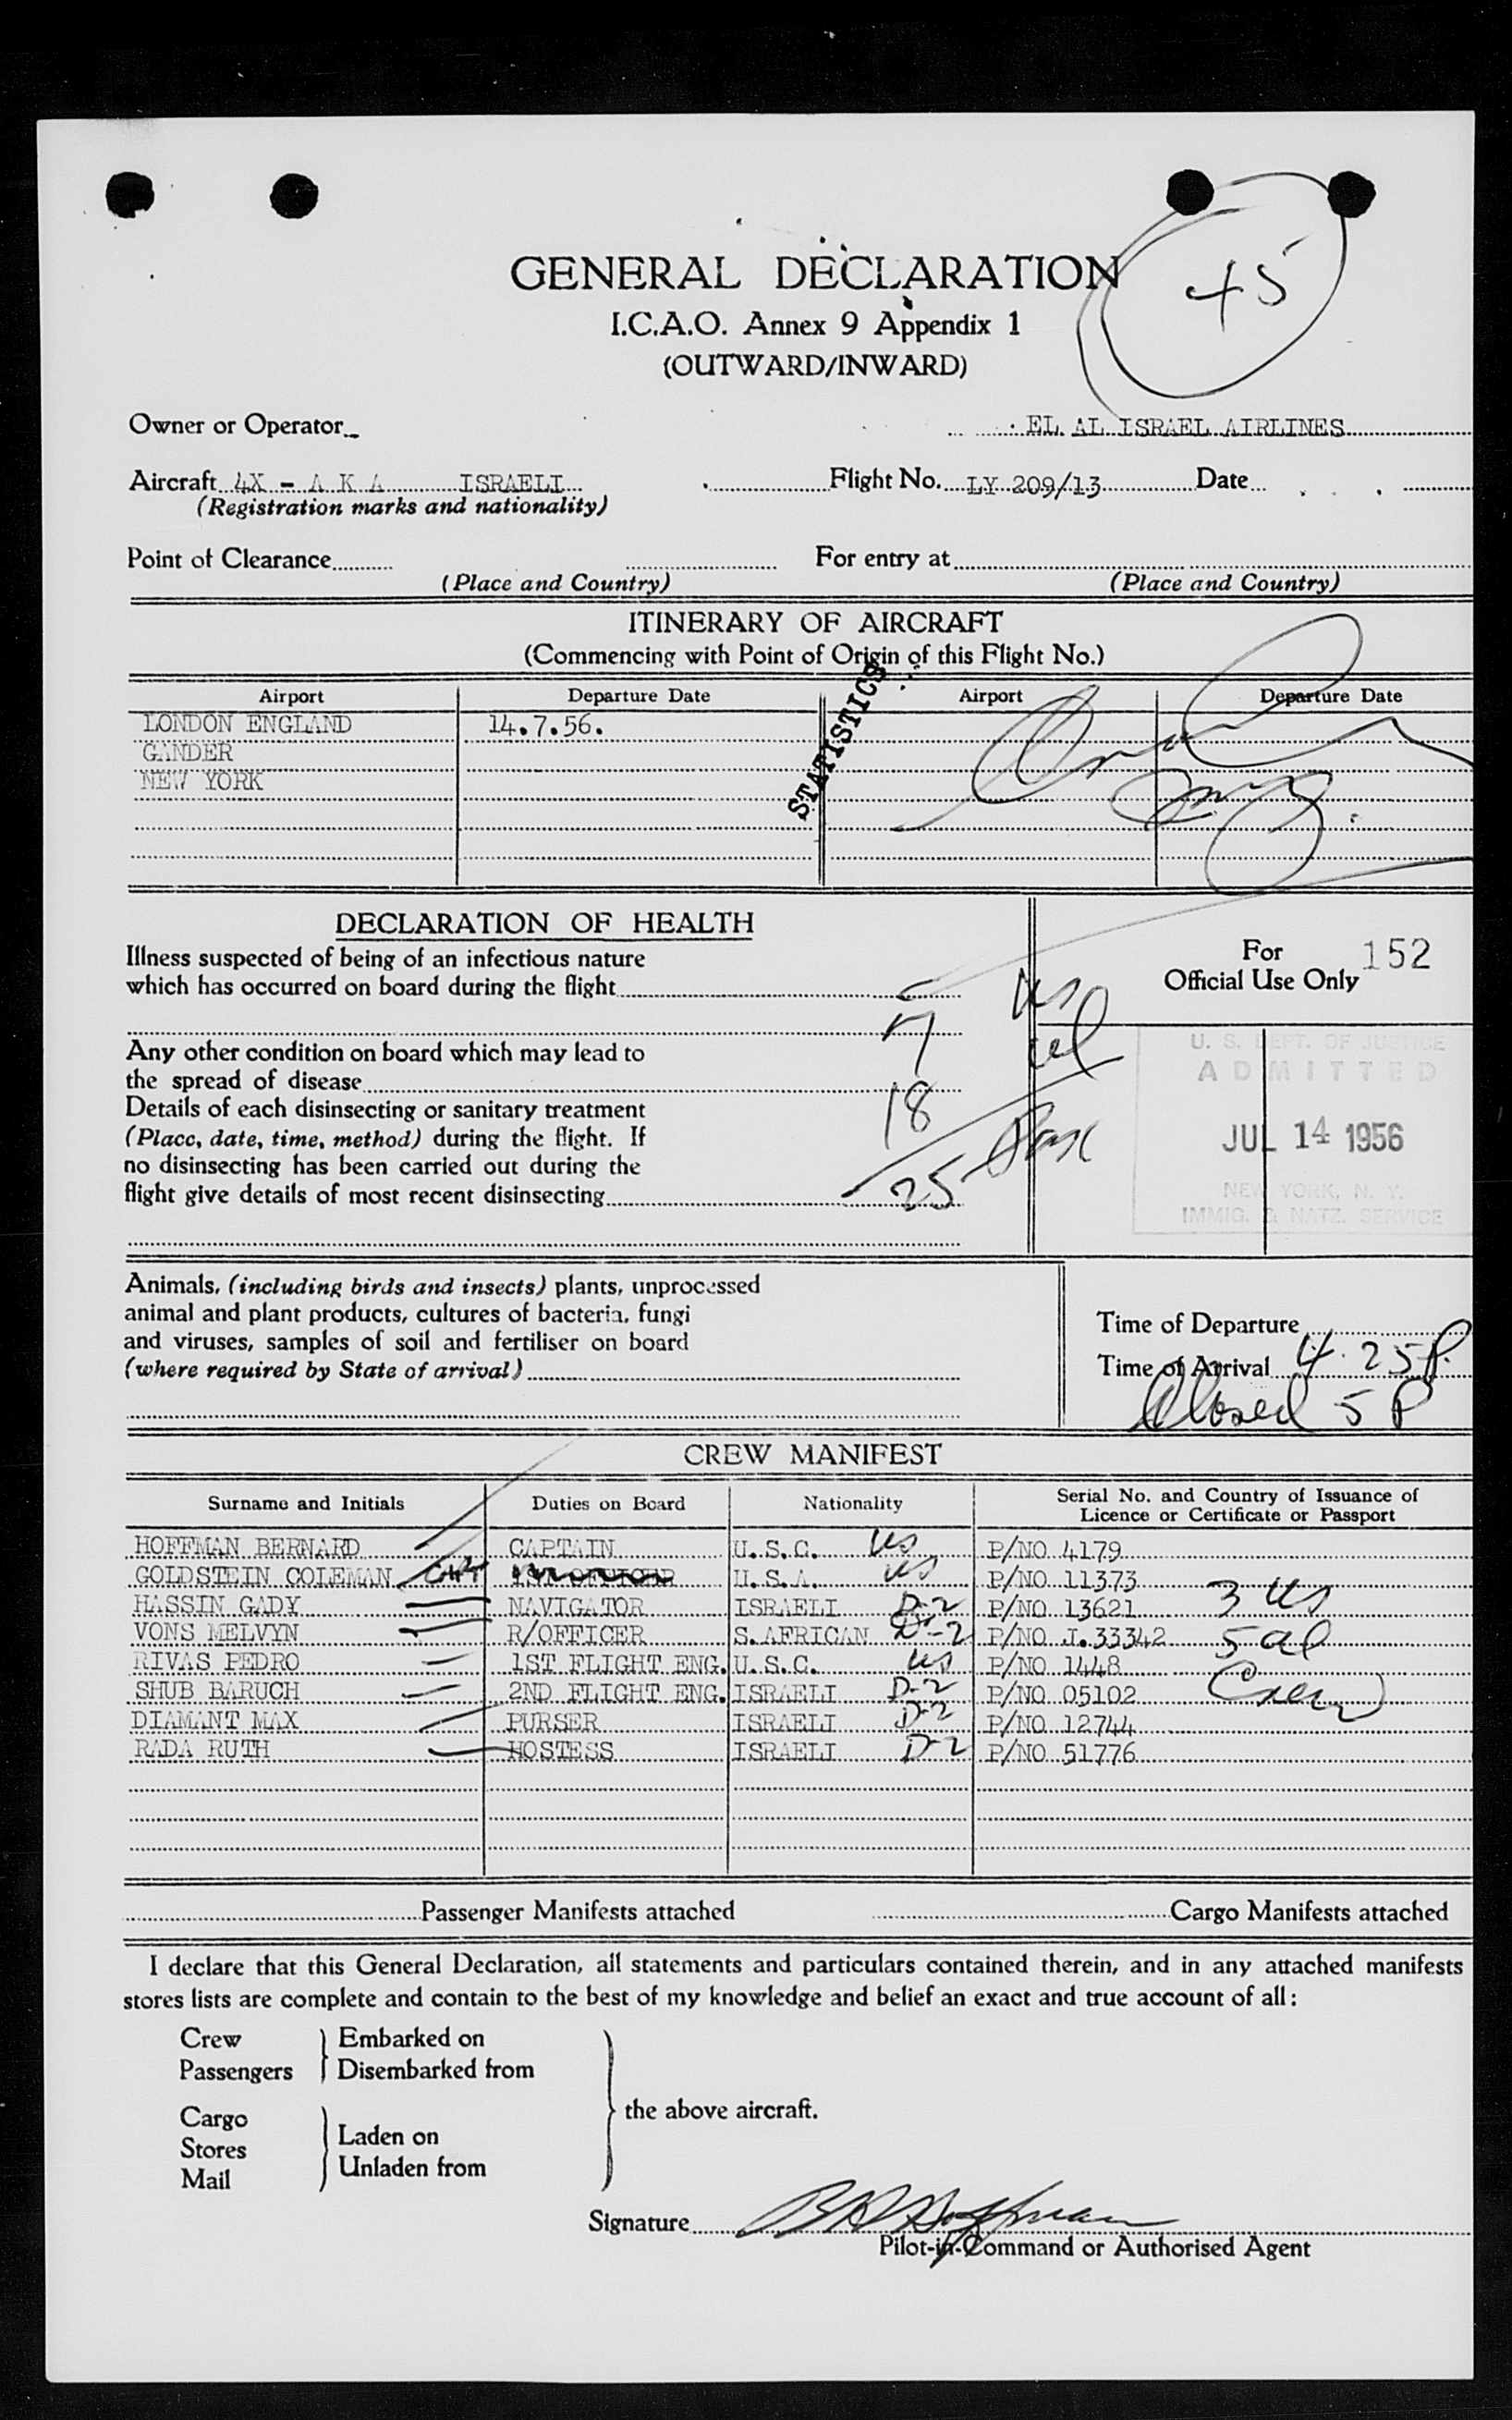 45
GENERAL DECLARATION
I.C.A.O. Annex 9 Appendix 1
(OUTWARD/INWARD)
Owner or Operator EL AL ISRAEL AIRLINES
Aircraft 4X - A K A ISRAELI Flight No. LY 209/13 Date
(Registration marks and nationality)
Point of Clearance For entry at
(Place and Country) (Place and Country)
ITINERARY OF AIRCRAFT
(Commencing with Point of Origin of this Flight No.)
STATISTICS
Airport Departure Date Airport Departure Date
LONDON ENGLAND 14.7.56.
GANDER
NEW YORK
DECLARATION OF HEALTH
Illness suspected of being of an infectious nature
which has occurred on board during the flight
Any other condition on board which may lead to
the spread of disease
Details of each disinsecting or sanitary treatment
(Place, date, time, method) during the flight. If
no disinsecting has been carried out during the
flight give details of most recent disinsecting
7 us
18 al
25 Pax
For
Official Use Only 152
U. S. DEPT. OF JUSTICE
ADMITTED
JUL 14 1956
NEW YORK, N. Y.
IMMIG. & NATZ. SERVICE
Animals, (including birds and insects) plants, unprocessed
animal and plant products, cultures of bacteria, fungi
and viruses, samples of soil and fertiliser on board
(where required by State of arrival)
Time of Departure
Time of Arrival 4.25P.
Closed 5 P
CREW MANIFEST
Surname and Initials Duties on Board Nationality Serial No. and Country of Issuance of
Licence or Certificate or Passport
HOFFMAN BERNARD CAPTAIN U.S.C. US P/NO 4179
GOLDSTEIN COLEMAN CAPT 1ST OFFICER U.S.A. US P/NO 11373
HASSIN GADY NAVIGATOR ISRAELI D-2 P/NO 13621 3 US
VONS MELVYN R/OFFICER S.AFRICAN D-2 P/NO J.33342 5 al
RIVAS PEDRO 1ST FLIGHT ENG. U.S.C. US P/NO 1448
SHUB BARUCH 2ND FLIGHT ENG. ISRAELI D-2 P/NO 05102 Crew
DIAMANT MAX PURSER ISRAELI D-2 P/NO 12744
RADA RUTH HOSTESS ISRAELI D-2 P/NO 51776
Passenger Manifests attached Cargo Manifests attached
I declare that this General Declaration, all statements and particulars contained therein, and in any attached manifests
stores lists are complete and contain to the best of my knowledge and belief an exact and true account of all:
Crew Embarked on
Passengers Disembarked from
the above aircraft.
Cargo
Stores Laden on
Mail Unladen from
Signature B Hoffman
Pilot-in-Command or Authorised Agent